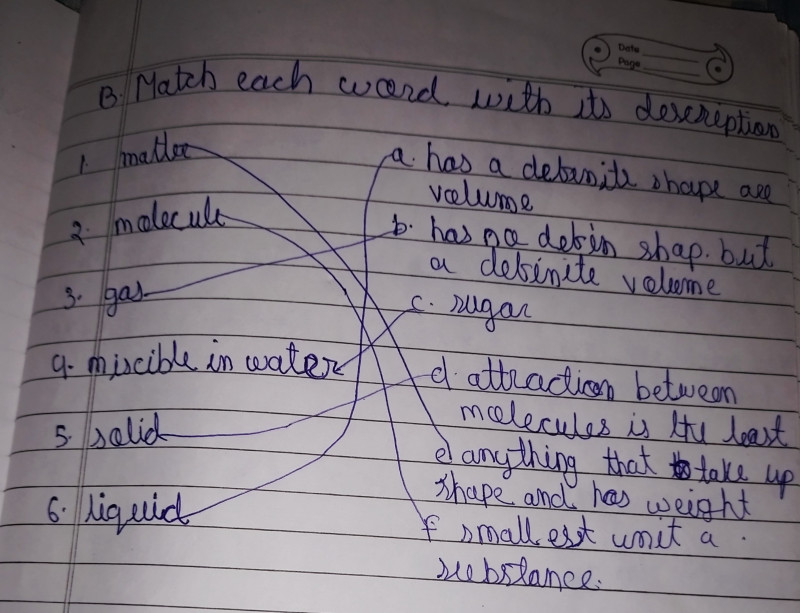 Date
Page
B. Match each word with its description
1. matter
a. has a definite shape all
volume
2. molecule
b. has no defin shap. but
a definite volume
3. gas
c. sugar
4. miscible in water
d. attraction between
molecules is the least
5. solid
e) anything that take up
shape and has weight
6. liquid
f smallest unit a
substance.